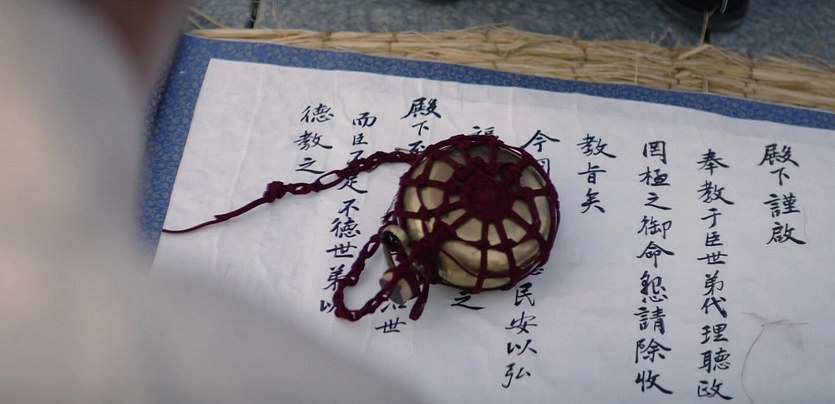 殿下謹啟
奉教于臣世弟代理聽政
罔極之御命懇請除收
教旨矣
今
民安以弘
之
殿下
世
而臣不足不德世弟以
德教之